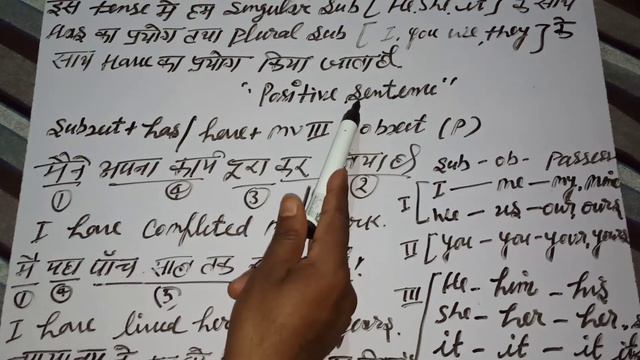 इस tense में हम singular sub [He, she, it] के साथ
Has का प्रयोग तथा plural sub [I, you we, they] के
साथ Have का प्रयोग किया जाता है
"Positive Sentence"
Subject + has/have + mv III object (P)
मैंने अपना काम पूरा कर है
① ④ ③ ②
I have completed work.
मैं यहाँ पाँच साल तक
① ④ ⑤
I have lived
Sub - ob - Possess
I [I — me — my, mine
we - us - our, ours
II [you - you - your, yours
III [He - him - his
she - her - her
it - it - it